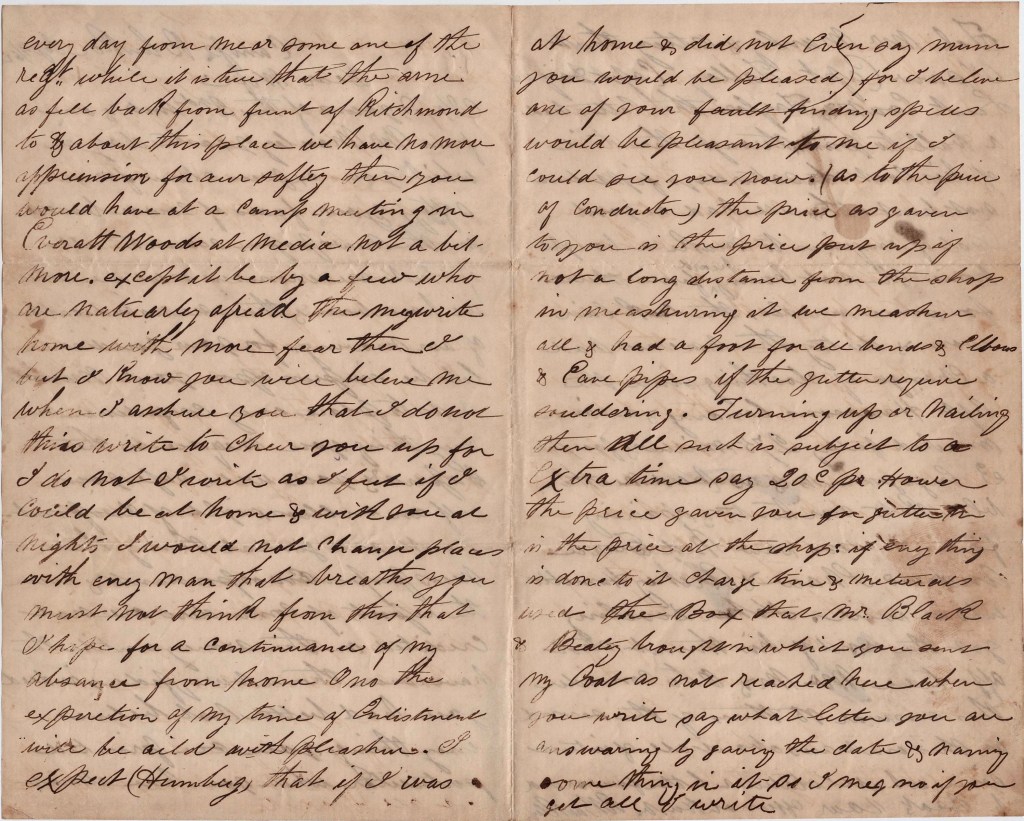 every day from me or some one of the
regt. while it is true that the arme
as fell back from frunt of Ritchmond
to & about this place we have no more
appriension for our saftey then you
would have at a camp meeting in
Everatt Woods at Media not a bit
more. except it be by a few who
are natuarley afread the mey write
home with more fear then I
but I know you will beleve me
when I asshure you that I do not
this write to chear you up for
I do not I write as I feel if I
could be at home & with you at
nights I would not change places
with eney man that breaths you
must not think from this that
I hope for a continuance of my
absance from home O no the
expirection of my time of Enlistment
will be aild with pleashure. I
expect (Humbug) that if I was
at home & did not even say mum
you would be pleased) for I beleve
one of your fault finding spells
would be pleasant to me if I
could see you now. (as to the price
of conductor) the price as gaven
to you is the price put up if
not a long distance from the shop
in meashuring it we meashur
all & had a foot for all bends & Elbows
& Eave pipes if the gutter require
souldering. Turning up or Nailing
then all such is subject to a
Extra time say 20c pr Hower
the price gaven you for gutter
is the price at the shop: if eney thing
is done to it charge time & meterials
used the Box that Mr. Black
& Beatey brought in which you sent
my Coat as not reached here when
you write say what letter you are
answaring by gaving the date & naming
some thing in it so I mey no if you
get all I write